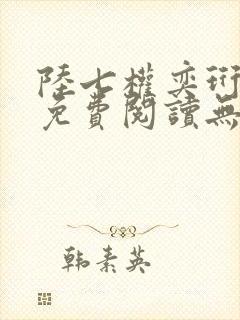 陸七權奕珩
免費閱讀無
韩素英